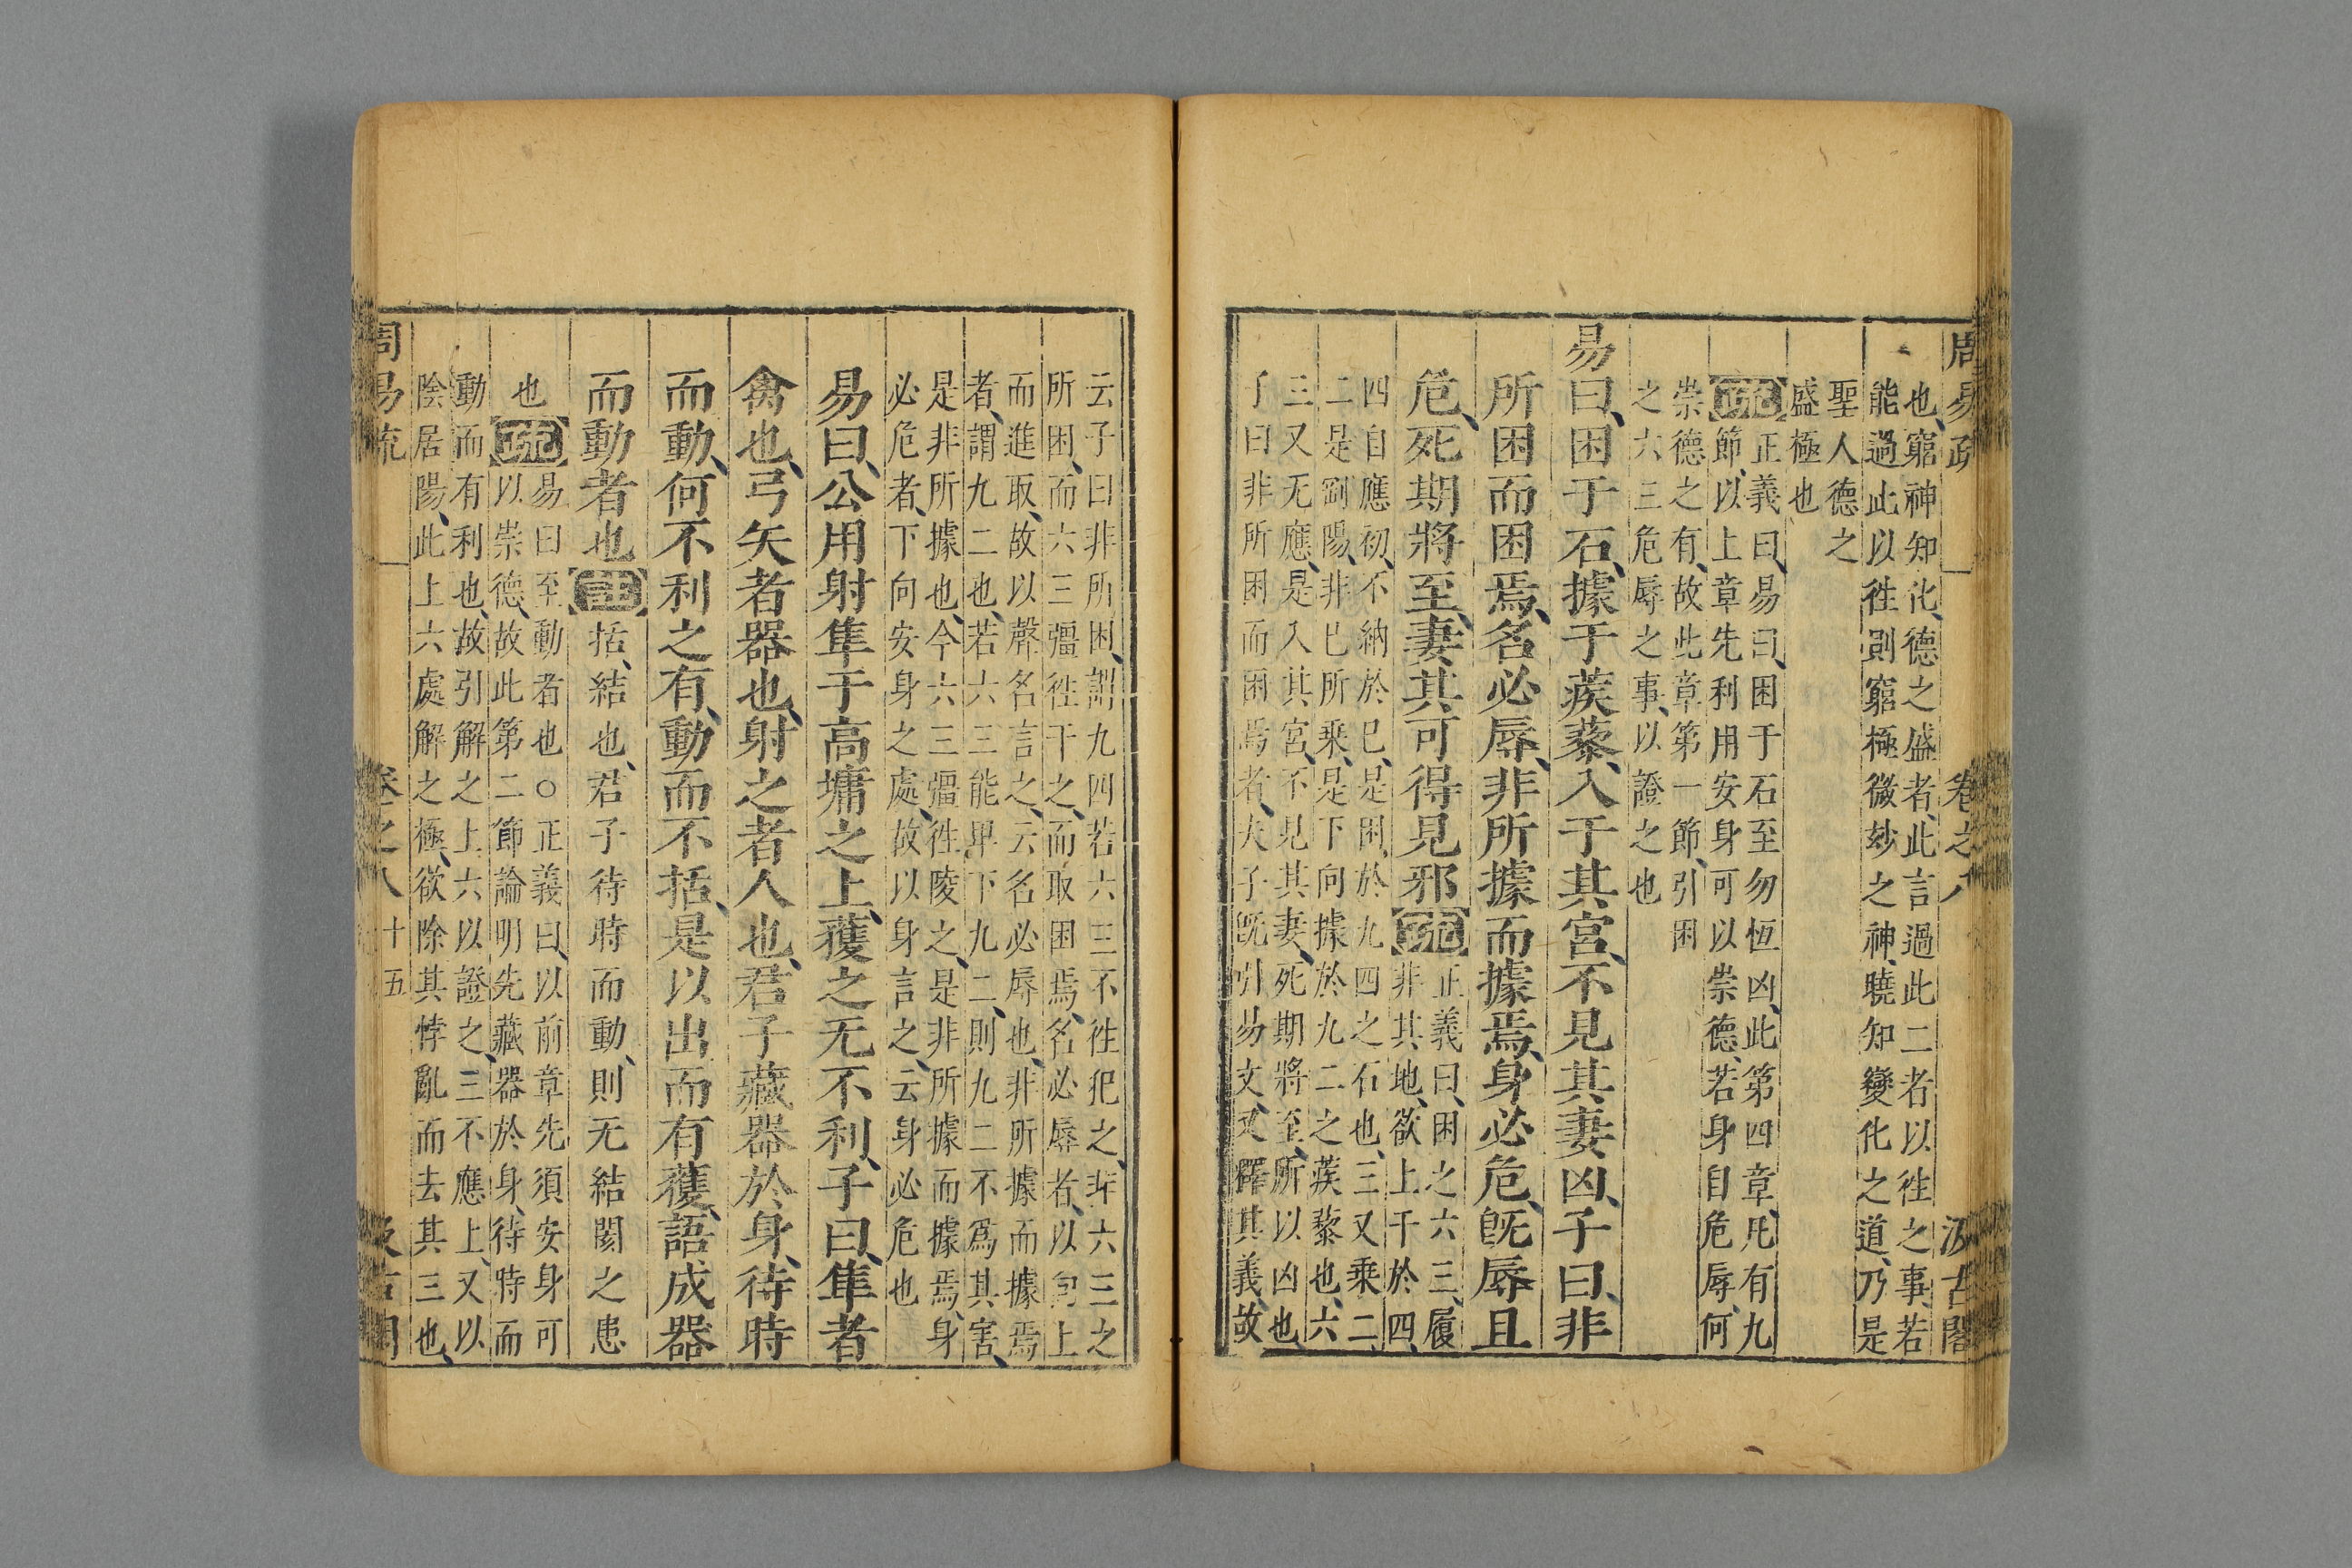 周易疏 卷之八 汲古閣
也窮神知化德之盛者此言過此二者以徃之事若
能過此以徃則窮極微妙之神曉知變化之道乃是
聖人德之
盛極也
疏 正義曰易曰困于石至勿恒凶此第四章凡有九
節以上章先利用安身可以崇德若身自危辱何
崇德之有故此章第一節引困
之六三危辱之事以證之也
易曰困于石據于蒺藜入于其宮不見其妻凶子曰非
所困而困焉名必辱非所據而據焉身必危旣辱且
危死期將至妻其可得見邪
疏 正義曰困之六三履
非其地欲上干於四
四自應初不納於已是困於九四之石也三又乗二
二是剛陽非已所乗是下向據於九二之蒺藜也六
三又无應是入其宮不見其妻死期將至所以凶也
子曰非所困而困焉者夫子旣引易文又釋其義故
云子曰非所困謂九四若六三不徃犯之非六三之
所困而六三彊徃干之而取困焉名必辱者以向上
而進取故以聲名言之云名必辱也非所據而據焉
者謂九二也若六三能卑下九二則九二不爲其害
是非所據也今六三彊徃陵之是非所據而據焉身
必危者下向安身之處故以身言之云身必危也
易曰公用射隼于高墉之上獲之无不利子曰隼者
禽也弓矢者器也射之者人也君子藏器於身待時
而動何不利之有動而不括是以出而有獲語成器
而動者也 註 括結也君子待時而動則无結閡之患
也 疏 易曰至動者也○正義曰以前章先須安身可
以崇德故此第二節論明先藏器於身待時而
動而有利也故引解之上六以證之三不應上又以
陰居陽此上六處解之極欲除其悖亂而去其三也
周易疏 卷之八 十五 汲古閣